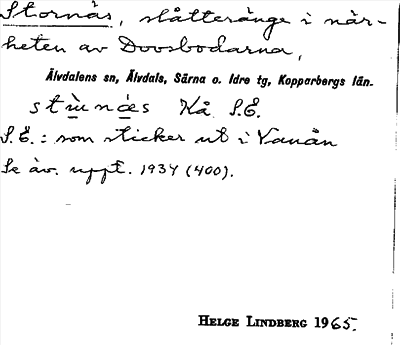 Stornäs, slåtteränge i när-
heten av Dovsbodarna,
Älvdalens sn, Älvdals, Särna o. Idre tg, Kopparbergs län.
Kå S.E.
S.E.: som sticker ut i Vanån
Se äv. uppt. 1934 (400).
HELGE LINDBERG 1965.